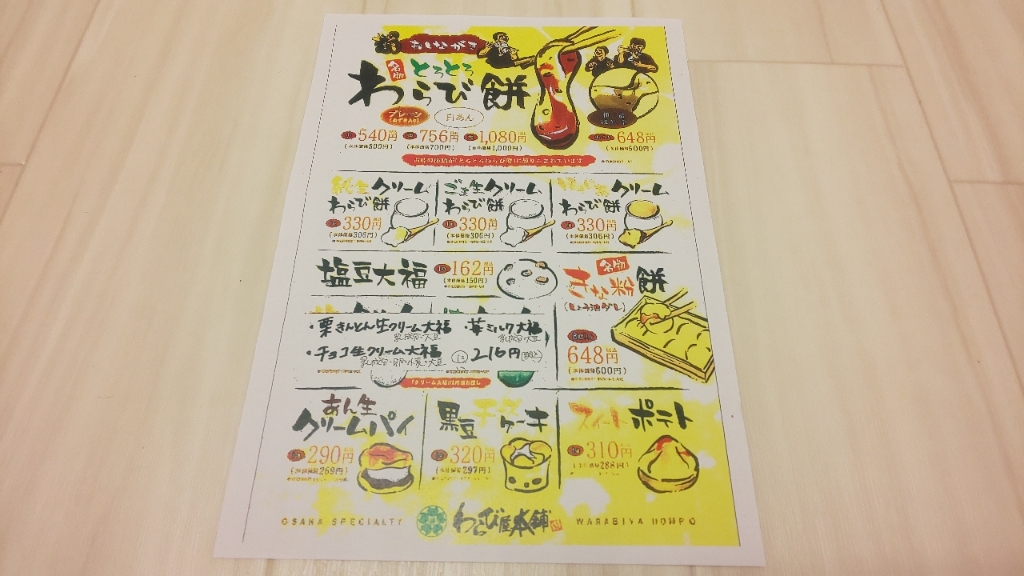 おしながき
名物 とろとろ
わらび餅
プレーン
白あん
540円 756円 1,080円 648円
(本体価格500円) (本体価格700円) (本体価格1,000円) (本体価格600円)
純生クリーム
わらび餅
330円
(本体価格306円)
ごま生クリーム
わらび餅
330円
(本体価格306円)
クリーム
わらび餅
330円
(本体価格306円)
塩豆大福
162円
(本体価格150円)
名物
きな粉餅
648円
(本体価格600円)
・栗きんとん生クリーム大福 ・苺ミルク大福
・チョコ生クリーム大福 216円
あん生
クリームパイ
290円
(本体価格269円)
黒豆チーズケーキ
320円
(本体価格297円)
スイートポテト
310円
(本体価格288円)
OSAKA SPECIALTY わらび屋本舗 WARABIYA HONPO